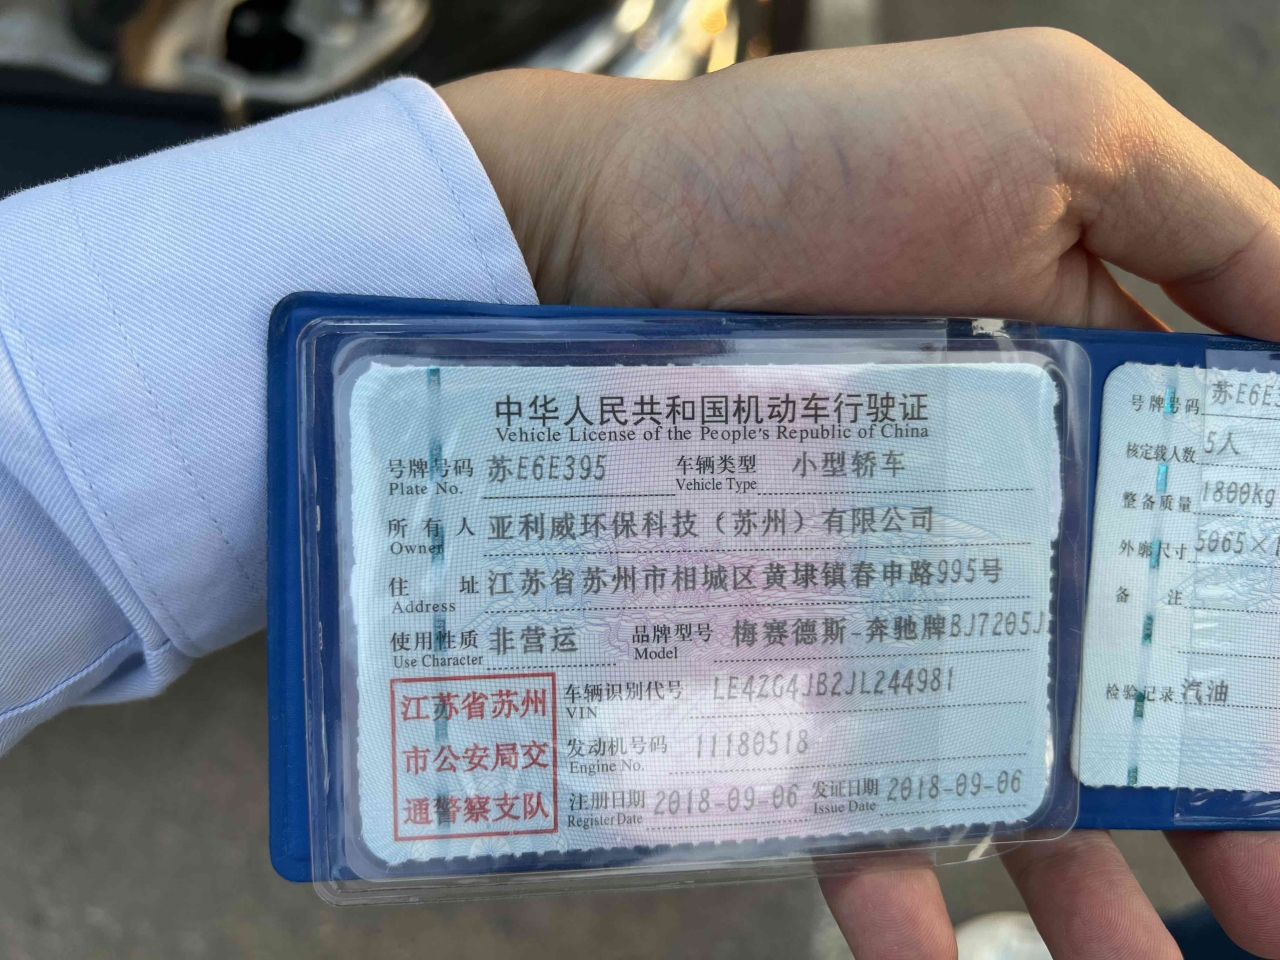 中华人民共和国机动车行驶证
Vehicle License of the People's Republic of China
号牌号码 苏E6E395 车辆类型 小型轿车
Plate No. Vehicle Type
所有人 亚利威环保科技（苏州）有限公司
Owner
住址 江苏省苏州市相城区黄埭镇春申路995号
Address
使用性质 非营运 品牌型号 梅赛德斯-奔驰牌BJ7205J
Use Character Model
江苏省苏州
市公安局交
通警察支队
车辆识别代号 LE4ZG4JB2JL244981
VIN
发动机号码 11180518
Engine No.
注册日期 2018-09-06 发证日期 2018-09-06
Register Date Issue Date
号牌号码 苏E6E3
核定载人数 5人
整备质量 1800kg
外廓尺寸 5065×
备注
检验记录 汽油